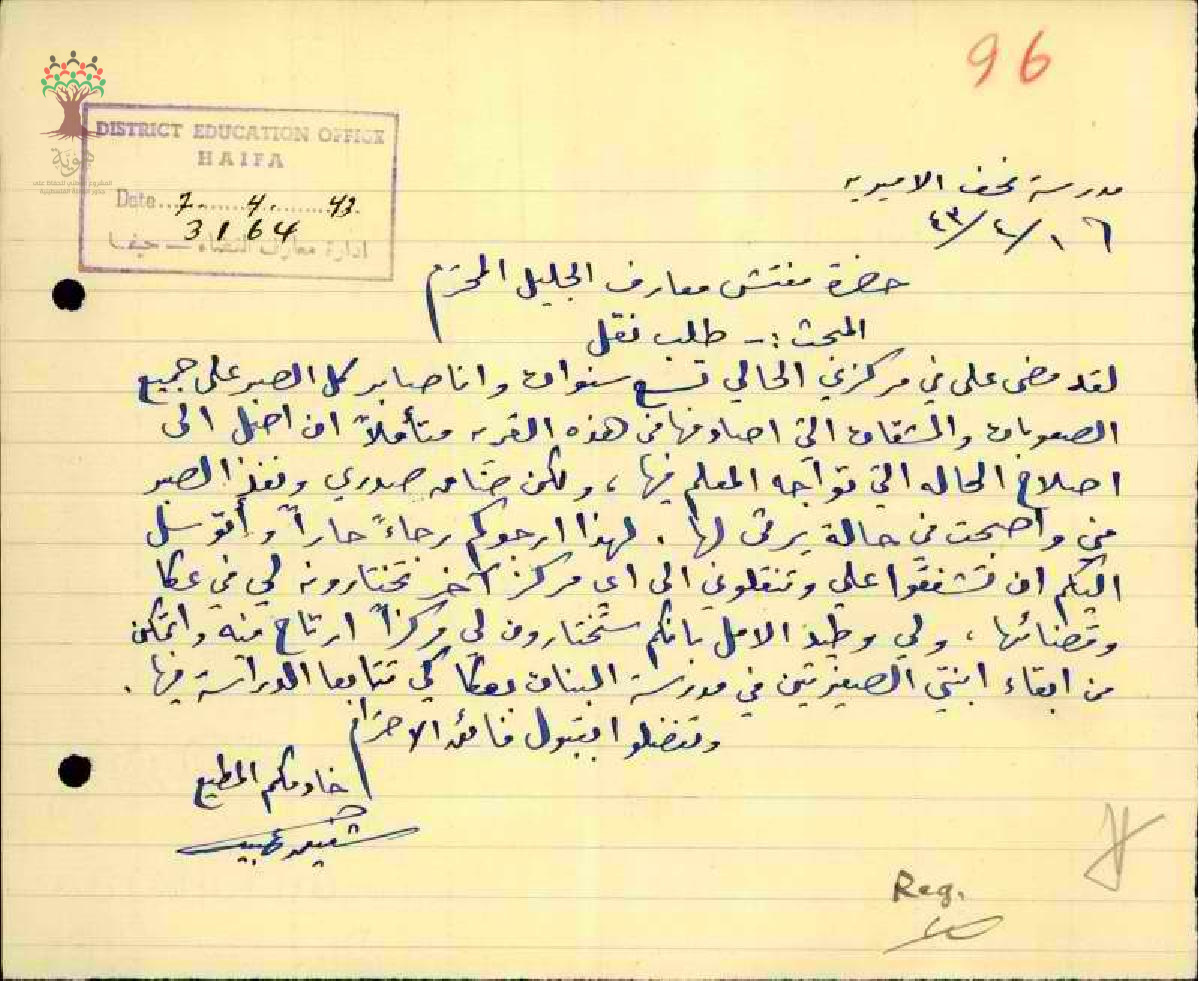 96
DISTRICT EDUCATION OFFICE
HAIFA
Date 7. 4. 43
3164
ادارة معارف القضاء — حيفا
هوية
مدرسة نحف الاميريه
٤٣/٤/٦
حضرة مفتش معارف الجليل المحترم
المبحث :- طلب نقل
لقد مضى علي في مركزي الحالي تسع سنوات وانا صابر كل الصبر على جميع
الصعوبات والمشقات التي اصادفها في هذه القريه متأملاً ان اصل الى
اصلاح الحاله التي تواجه المعلم فيها ، ولكن ضاق صدري ونفذ الصبر
مني واصبحت في حالة يرثى لها . لهذا ارجوكم رجاءً حاراً وأتوسل
اليكم ان تشفقوا علي وتنقلوني الى اي مركز آخر تختارونه لي في عكا
وقضائها ، ولي وطيد الامل بانكم ستختارون لي مركزاً ارتاح فيه واتمكن
من ابقاء ابنتي الصغيرتين في مدرسة البنات بعكا كي تتابعا الدراسة فيها .
وتفضلوا بقبول فائق الاحترام
خادمكم المطيع
Reg.